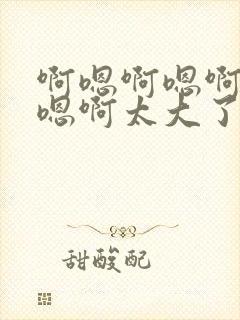 啊嗯啊嗯啊
嗯啊太大了
甜酸配